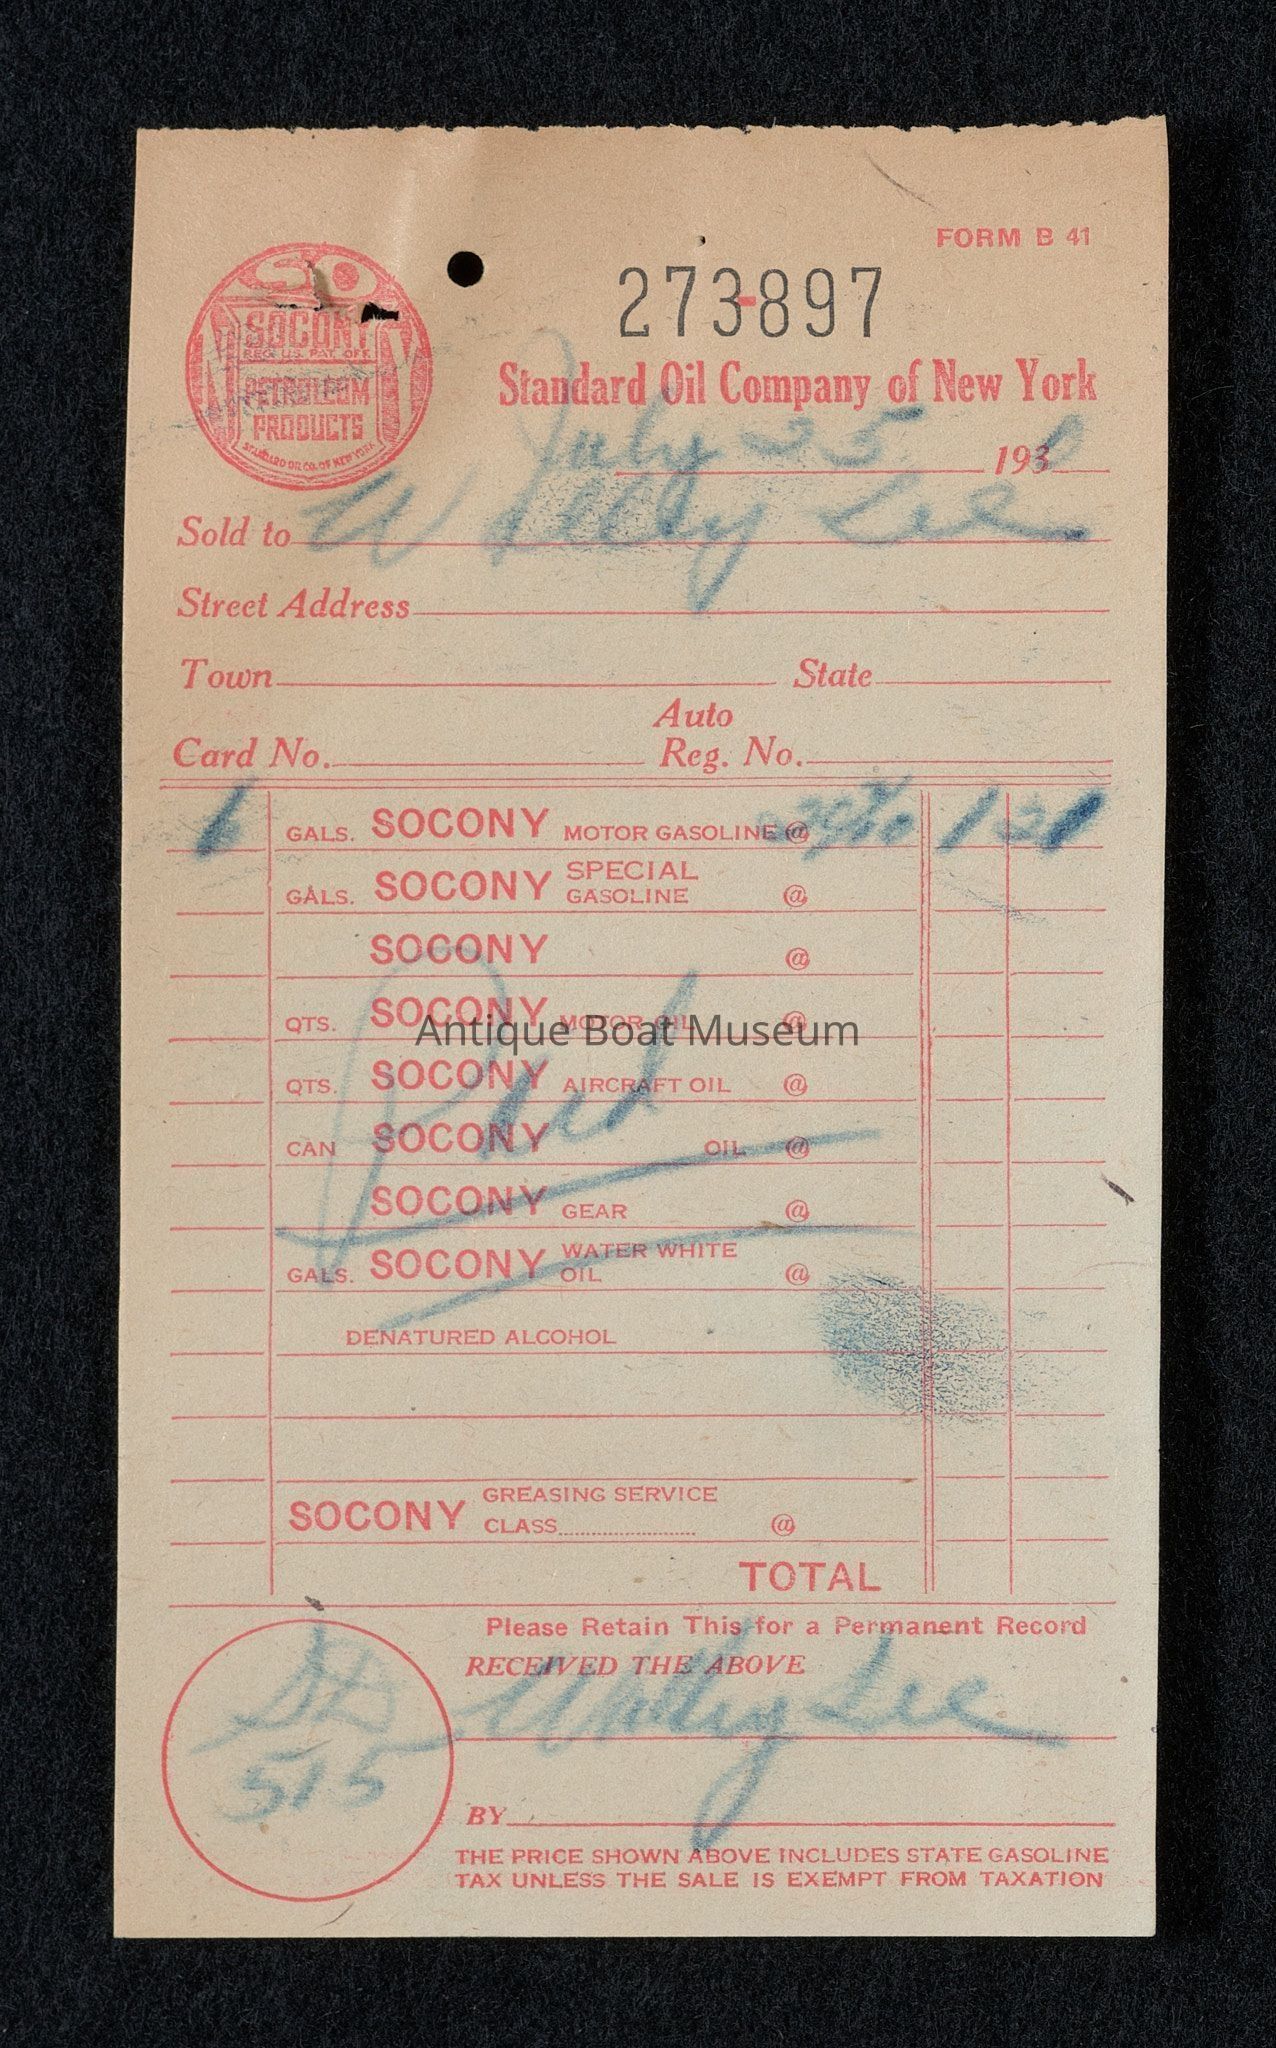 FORM B 41
SO
SOCONY
REG. U.S. PAT. OFF.
PETROLEUM
PRODUCTS
STANDARD OIL CO. OF NEW YORK
273-897
Standard Oil Company of New York
July 25 1930
Sold to W Lee
Street Address
Town State
Auto
Card No. Reg. No.
6 GALS. SOCONY MOTOR GASOLINE @ 1 21
GALS. SOCONY SPECIAL GASOLINE @
SOCONY @
QTS. SOCONY MOTOR OIL @
Antique Boat Museum
QTS. SOCONY AIRCRAFT OIL @
Paid
CAN SOCONY OIL @
SOCONY GEAR @
GALS. SOCONY WATER WHITE OIL @
DENATURED ALCOHOL
SOCONY GREASING SERVICE
CLASS @
TOTAL
Please Retain This for a Permanent Record
RECEIVED THE ABOVE
Lee
515
BY
THE PRICE SHOWN ABOVE INCLUDES STATE GASOLINE
TAX UNLESS THE SALE IS EXEMPT FROM TAXATION